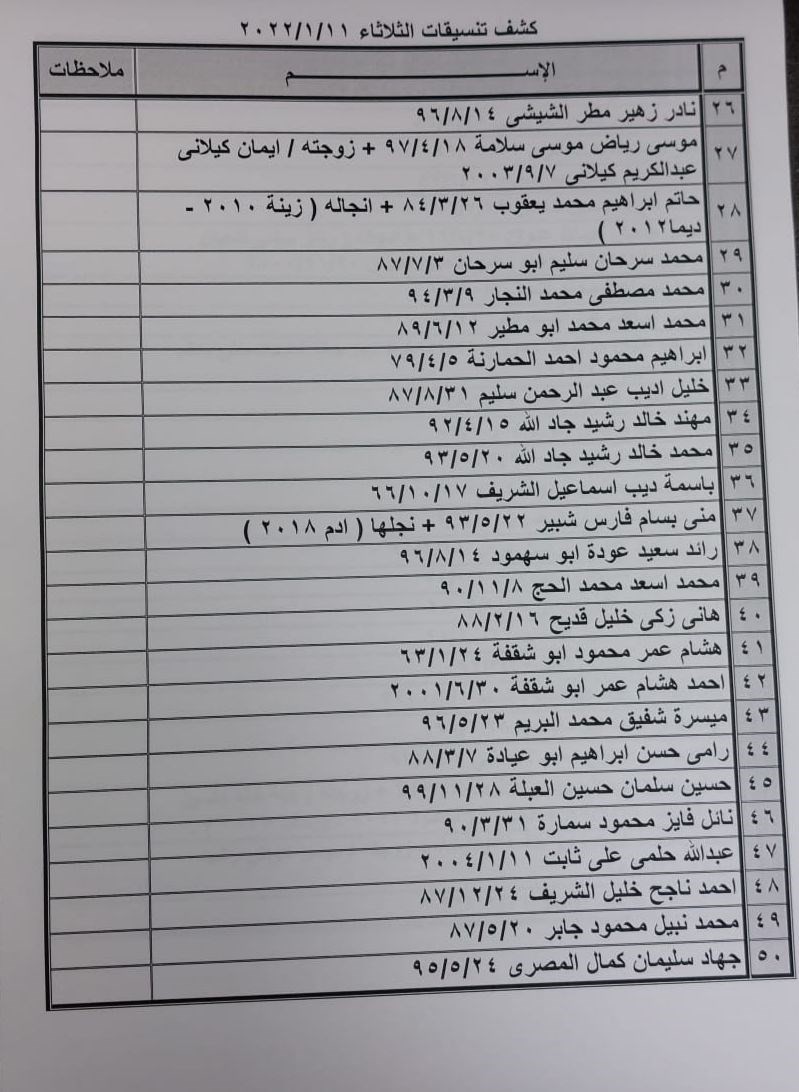 كشف تنسيقات الثلاثاء ٢٠٢٢/١/١١
م الإســـــــــــم ملاحظات
٢٦ نادر زهير مطر الشيشى ٩٦/٨/١٤
٢٧ موسى رياض موسى سلامة ٩٧/٤/١٨ + زوجته / ايمان كيلانى
عبدالكريم كيلانى ٢٠٠٣/٩/٧
٢٨ حاتم ابراهيم محمد يعقوب ٨٤/٣/٢٦ + انجاله ( زينة ٢٠١٠ -
ديما٢٠١٢ )
٢٩ محمد سرحان سليم ابو سرحان ٨٧/٧/٣
٣٠ محمد مصطفى محمد النجار ٩٤/٣/٩
٣١ محمد اسعد محمد ابو مطير ٨٩/٦/١٢
٣٢ ابراهيم محمود احمد الحمارنة ٧٩/٤/٥
٣٣ خليل اديب عبد الرحمن سليم ٨٧/٨/٣١
٣٤ مهند خالد رشيد جاد الله ٩٢/٤/١٥
٣٥ محمد خالد رشيد جاد الله ٩٣/٥/٢٠
٣٦ باسمة ديب اسماعيل الشريف ٦٦/١٠/١٧
٣٧ منى بسام فارس شبير ٩٣/٥/٢٢ + نجلها ( ادم ٢٠١٨ )
٣٨ رائد سعيد عودة ابو سهمود ٩٦/٨/١٤
٣٩ محمد اسعد محمد الحج ٩٠/١١/٨
٤٠ هانى زكى خليل قديح ٨٨/٢/١٦
٤١ هشام عمر محمود ابو شقفة ٦٣/١/٢٤
٤٢ احمد هشام عمر ابو شقفة ٢٠٠١/٦/٣٠
٤٣ ميسرة شفيق محمد البريم ٩٦/٥/٢٣
٤٤ رامى حسن ابراهيم ابو عيادة ٨٨/٣/٧
٤٥ حسين سلمان حسين العبلة ٩٩/١١/٢٨
٤٦ نائل فايز محمود سمارة ٩٠/٣/٣١
٤٧ عبدالله حلمى على ثابت ٢٠٠٤/١/١١
٤٨ احمد ناجح خليل الشريف ٨٧/١٢/٢٤
٤٩ محمد نبيل محمود جابر ٨٧/٥/٢٠
٥٠ جهاد سليمان كمال المصرى ٩٥/٥/٢٤